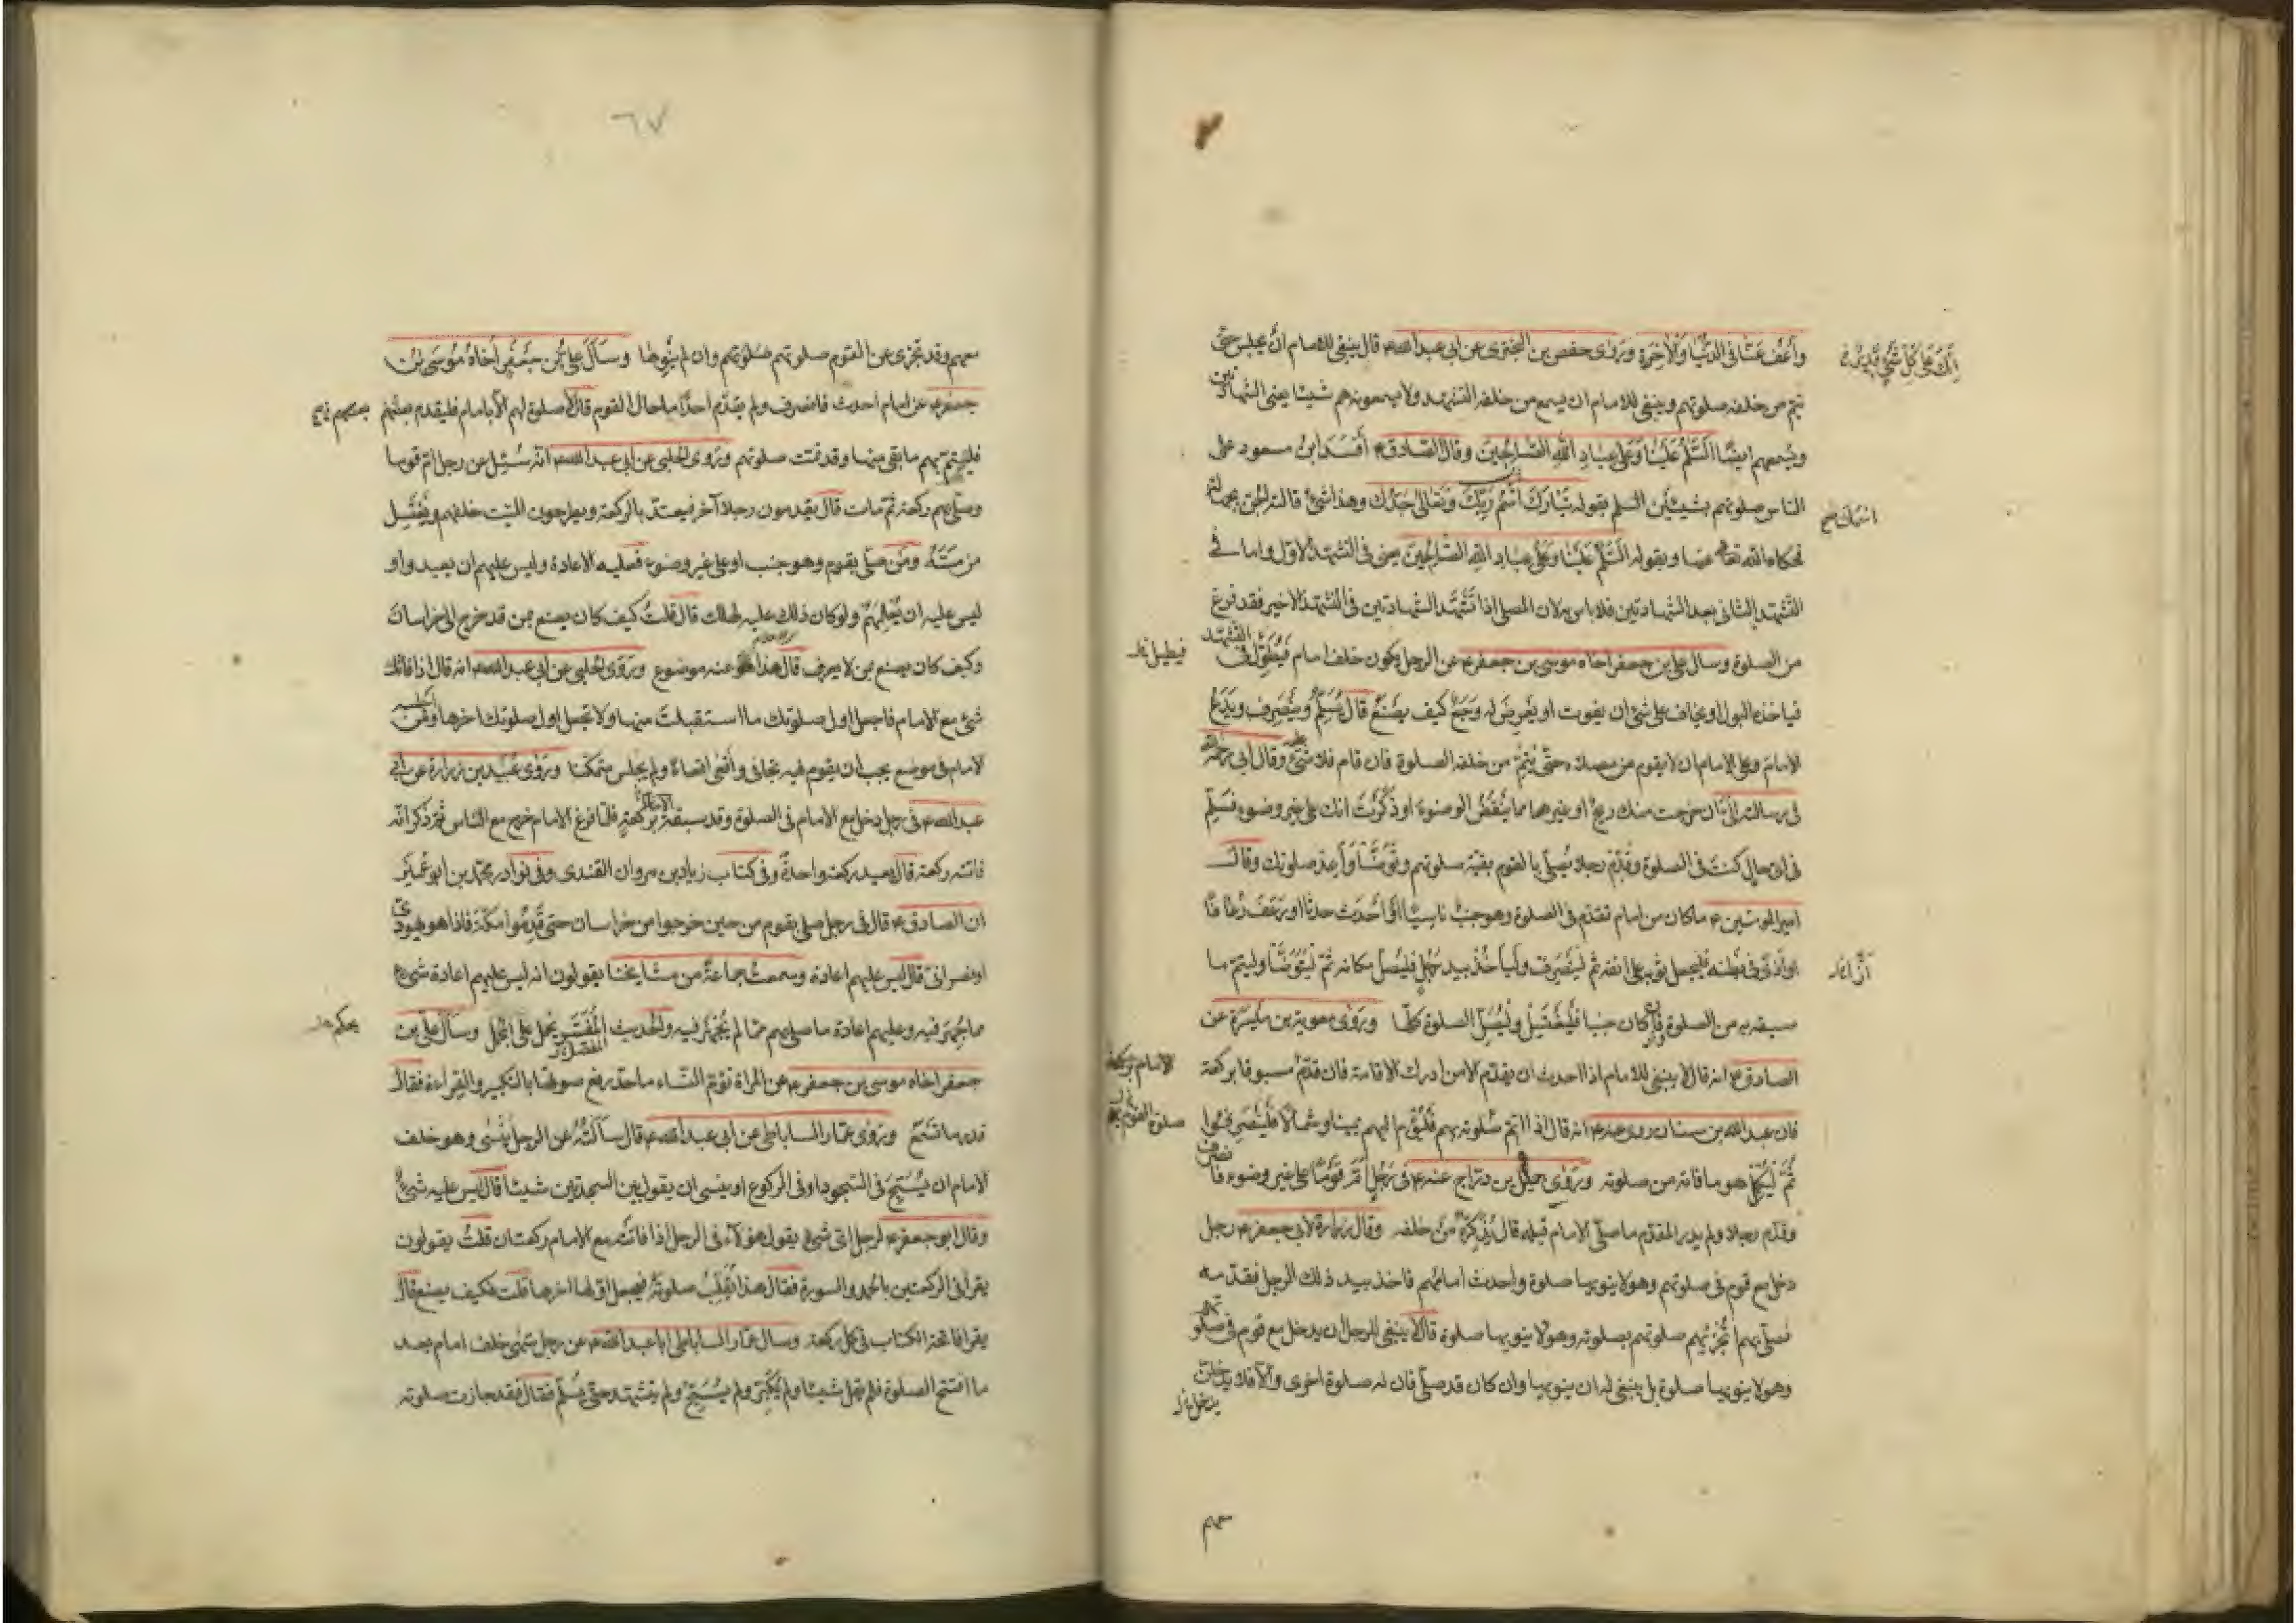 واعف عنا في الدنيا والآخرة وروى حفص بن البختري عن ابي عبد الله ع قال ينبغي للامام ان يجلس حتى
انك على كل شيء قدير
يتم من خلفه صلوتهم وينبغي للامام ان يسمع من خلفه التشهد ولا يسمعونه هم شيئا يعني الشهادتين
ويسمعهم ايضا السلم علينا وعلى عباد الله الصالحين وقال الصادق ع افسد ابن مسعود على
الناس صلوتهم بشيئين السلم بقوله تبارك اسم ربك وتعالى جدك وهذا شيء قالته الجن بجهالة
فحكاه الله تعالى عنها وبقوله السلم علينا وعلى عباد الله الصالحين يعني في التشهد الاول واما في
التشهد الثاني بعد الشهادتين فلا باس به لان المصلي اذا تشهد الشهادتين في التشهد الاخير فقد فرغ
من الصلوة وسال علي بن جعفر اخاه موسى بن جعفر ع عن الرجل يكون خلف امام فيطول في التشهد
فيطيل
فياخذه البول او يخاف على شيء ان يفوت او يعرض له وجع كيف يصنع قال يسلم وينصرف ويدع
الامام وعلى الامام ان لا يقوم من مصلاه حتى يتم من خلفه الصلوة فان قام فلا شيء عليه وقال ابي رحمه الله
في رسالته الي ان خرجت منك ريح او غيرها مما ينقض الوضوء او ذكرت انك على غير وضوء فسلم
في اي حال كنت في الصلوة وقدم رجلا يصلي بالقوم بقية صلوتهم وتوضأ واعد صلوتك وقال
امير المومنين ع ما كان من امام تقدم في الصلوة وهو جنب ناسيا او احدث حدثا او رعف رعافا
او اذى في بطنه فليجعل ثوبه على انفه ثم لينصرف وليأخذ بيد رجل فليصل مكانه ثم ليتوضأ وليتم ما
سبقه به من الصلوة فان كان جنبا فليغتسل وليصل الصلوة كلها وروى معوية بن ميسرة عن
الصادق ع انه قال لا ينبغي للامام اذا احدث ان يقدم الا من ادرك الاقامة فان قدم مسبوقا بركعة
الامام بركعة
فان عبد الله بن سنان روى عنه ع انه قال اذا اتم صلوته بهم فليؤم اليهم يمينا وشمالا فلينصرفوا
ثم ليكمل هو ما فاته من صلوته وروى جميل بن دراج عنه ع في رجل ام قوما على غير وضوء فانصرف
وقدم رجلا ولم يدر المقدم ما صلى الامام قبله قال يذكره من خلفه وقال زرارة لابي جعفر ع رجل
دخل مع قوم في صلوتهم وهو لا ينويها صلوة واحدث امامهم فاخذ بيد ذلك الرجل فقدمه
فصلى بهم اتجزئهم صلوتهم بصلوته وهو لا ينويها صلوة قال لا ينبغي للرجل ان يدخل مع قوم في صلوتهم
وهو لا ينويها صلوة بل ينبغي له ان ينويها وان كان قد صلى فان له صلوة اخرى والا فلا يدخلن
معهم
٦٧
معهم وقد تجزي عن القوم صلوتهم وان لم ينوها وسأل علي بن جعفر اخاه موسى بن
جعفر ع عن امام احدث فانصرف ولم يقدم احدا ما حال القوم قال لا صلوة لهم الا بامام فليقدم بعضهم
بعضهم
فليتم بهم ما بقي منها وقد تمت صلوتهم وروى الحلبي عن ابي عبد الله ع انه سئل عن رجل ام قوما
وصلى بهم ركعة ثم مات قال يقدمون رجلا آخر فيعتد بالركعة ويطرحون الميت خلفهم ويغتسل
من مسه ومن صلى بقوم وهو جنب او على غير وضوء فعليه الاعادة وليس عليهم ان يعيدوا و
ليس عليه ان يعلمهم ولو كان ذلك عليه لهلك قال قلت كيف كان يصنع بمن قد خرج الى خراسان
وكيف كان يصنع بمن لا يعرف قال هذا عنه موضوع وروى الحلبي عن ابي عبد الله ع انه قال اذا فاتك
شيء مع الامام فاجعل اول صلوتك ما استقبلت منها ولا تجعل اول صلوتك اخرها ومن اجلسه
الامام في موضع يجب ان يقوم فيه تجافى واقعى اقعاء ولم يجلس متمكنا وروى عبيد بن زرارة عن ابي
عبد الله ع في رجل دخل مع الامام في الصلوة وقد سبقه بركعة فلما فرغ الامام خرج مع الناس ثم ذكر انه
فاتته ركعة قال يعيد ركعة واحدة وفي كتاب زياد بن مروان القندي وفي نوادر محمد بن ابي عمير
ان الصادق ع قال في رجل صلى بقوم من حين خرجوا من خراسان حتى قدموا مكة فاذا هو يهودي
او نصراني قال ليس عليهم اعادة وسمعت جماعة من مشايخنا يقولون انه ليس عليهم اعادة شيء
مما جهر فيه وعليهم اعادة ما صلى بهم مما لم يجهر فيه والحديث المفسر يحمل على المجمل وسأل علي بن
يحكم
جعفر اخاه موسى بن جعفر ع عن المراة تؤم النساء ما حد رفع صوتها بالتكبير والقراءة فقال
قدر ما تسمع وروى عمار الساباطي عن ابي عبد الله ع قال سألته عن الرجل ينسى وهو خلف
الامام ان يسبح في السجود او في الركوع او ينسى ان يقول بين السجدتين شيئا قال ليس عليه شيء
وقال ابو جعفر ع لرجل اي شيء يقول هؤلاء في الرجل اذا فاتته مع الامام ركعتان قلت يقولون
يقرا في الركعتين بالحمد والسورة فقال هذا يقلب صلوته فيجعل اولها اخرها قلت فكيف يصنع قال
يقرا فاتحة الكتاب في كل ركعة وسال عمار الساباطي ابا عبد الله ع عن رجل سهى خلف امام بعد
ما افتتح الصلوة فلم يقل شيئا ولم يكبر ولم يسبح ولم يتشهد حتى يسلم فقال قد جازت صلوته